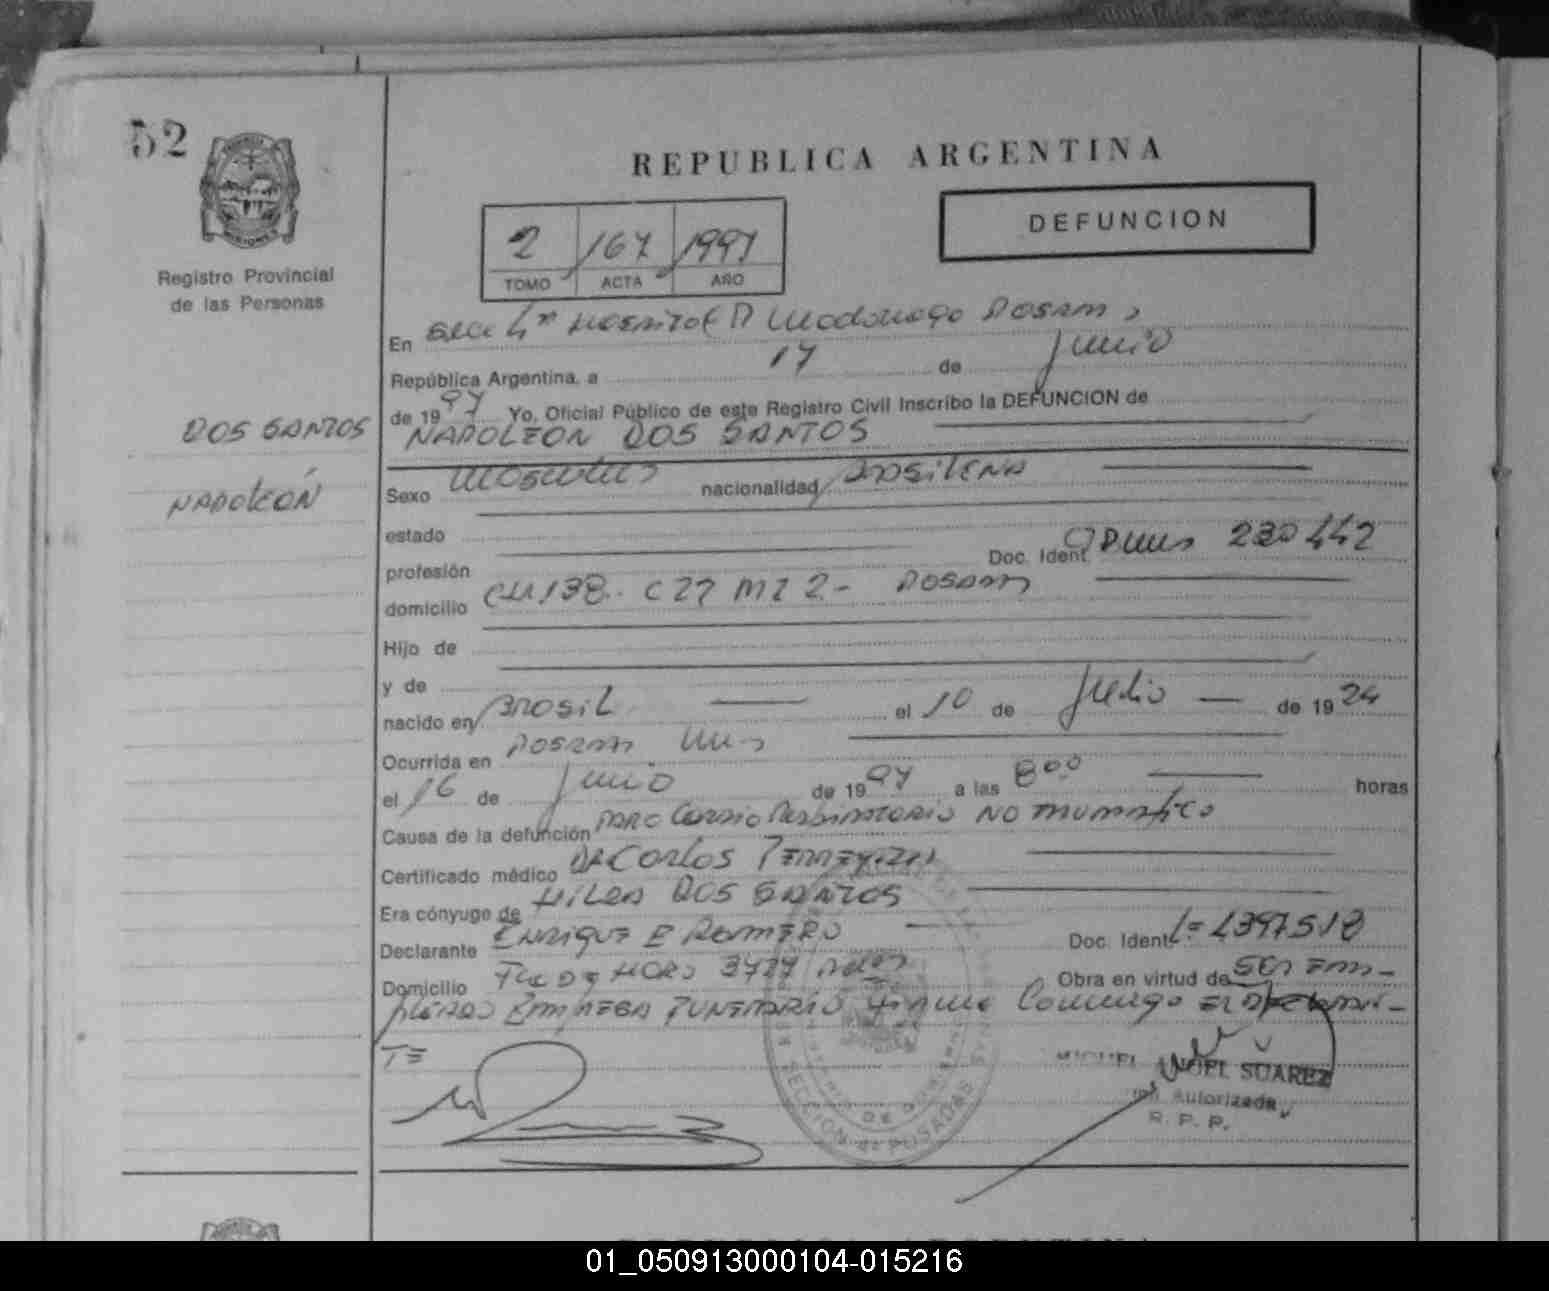 52
REPUBLICA ARGENTINA
DEFUNCION
2 167 1997
TOMO ACTA AÑO
Registro Provincial
de las Personas
En Secc 4ª Hospital R Madariaga Posadas
República Argentina, a 17 de Junio
de 1997 Yo, Oficial Público de este Registro Civil Inscribo la DEFUNCION de
DOS SANTOS
NAPOLEON DOS SANTOS
NAPOLEÓN
Sexo Masculino nacionalidad Brasilena
estado
profesión Doc. Ident. 230442
domicilio CH 138 C 27 MZ 2 - Posadas
Hijo de
y de
nacido en Brasil el 10 de Julio de 1924
Ocurrida en Posadas Mnes
el 16 de Junio de 1997 a las 800 horas
Causa de la defunción Paro Cardio Respiratorio NO Traumatico
Certificado médico DR Carlos
Era cónyuge de HILDA DOS SANTOS
Declarante ENRIQUE E ROMERO Doc. Ident.
Domicilio Obra en virtud de SER EM-
PLEADO EMPRESA FUNERARIA Firma Conmigo EL DECLARAN-
TE
MIGUEL ANGEL SUAREZ
Autorizada
R. P. P.
SECCION 4ª POSADAS
01_050913000104-015216